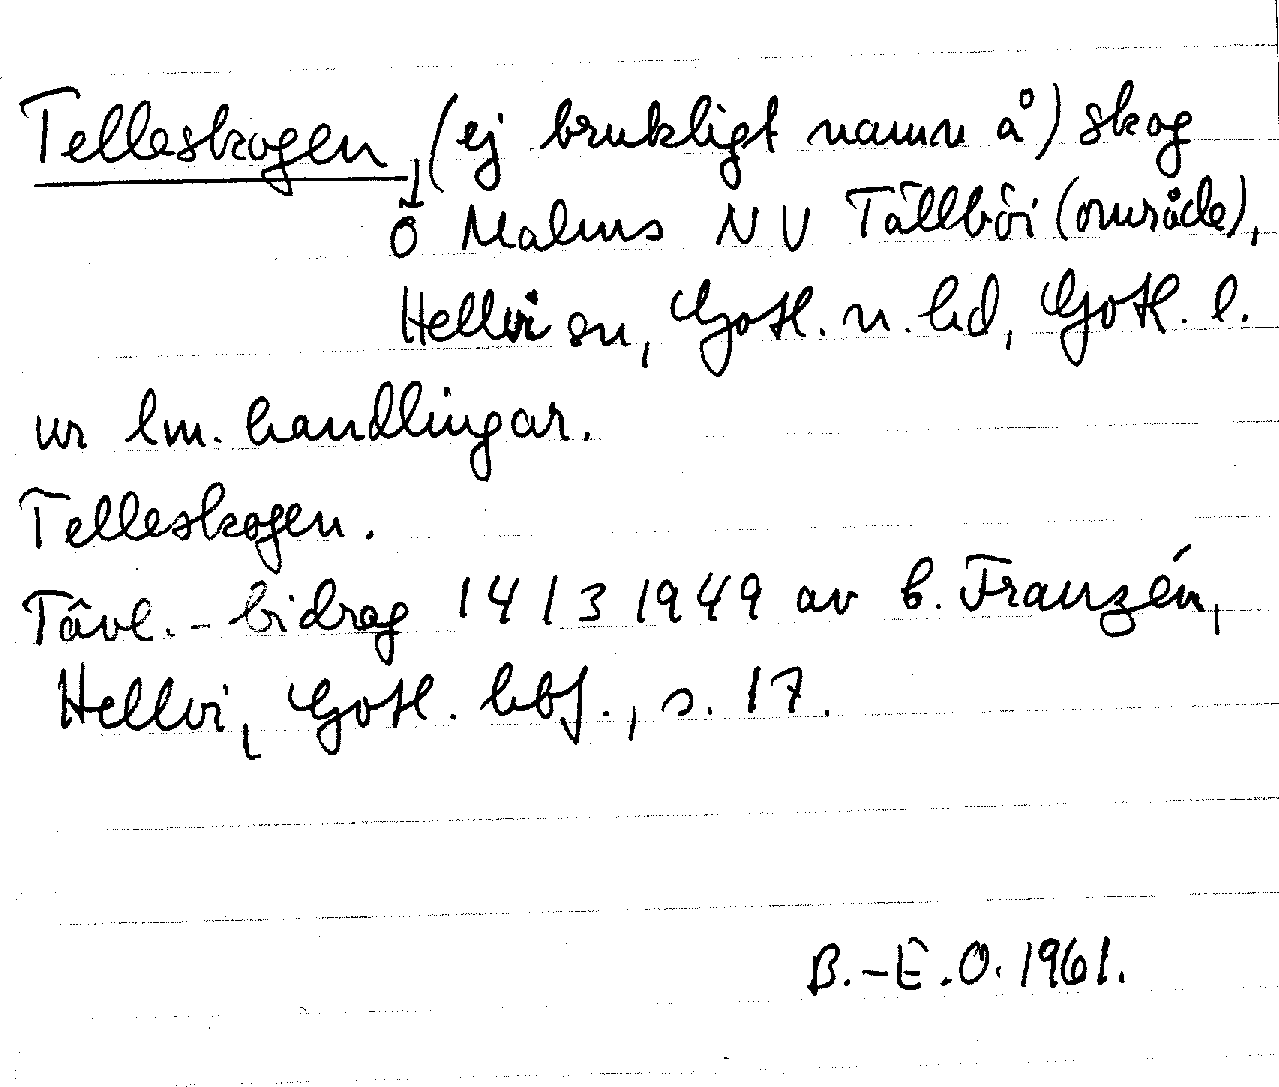 Telleskogen, (ej brukligt namn å) skog
Ö Malms NV Tällböi (område),
Hellvi sn, Gotl. n. hd, Gotl. l.
ur lm. handlingar.
Telleskogen.
Tävl.-bidrag 14/3 1949 av B. Franzén,
Hellvi, Gotl. hbf., s. 17.
B.-E.O. 1961.